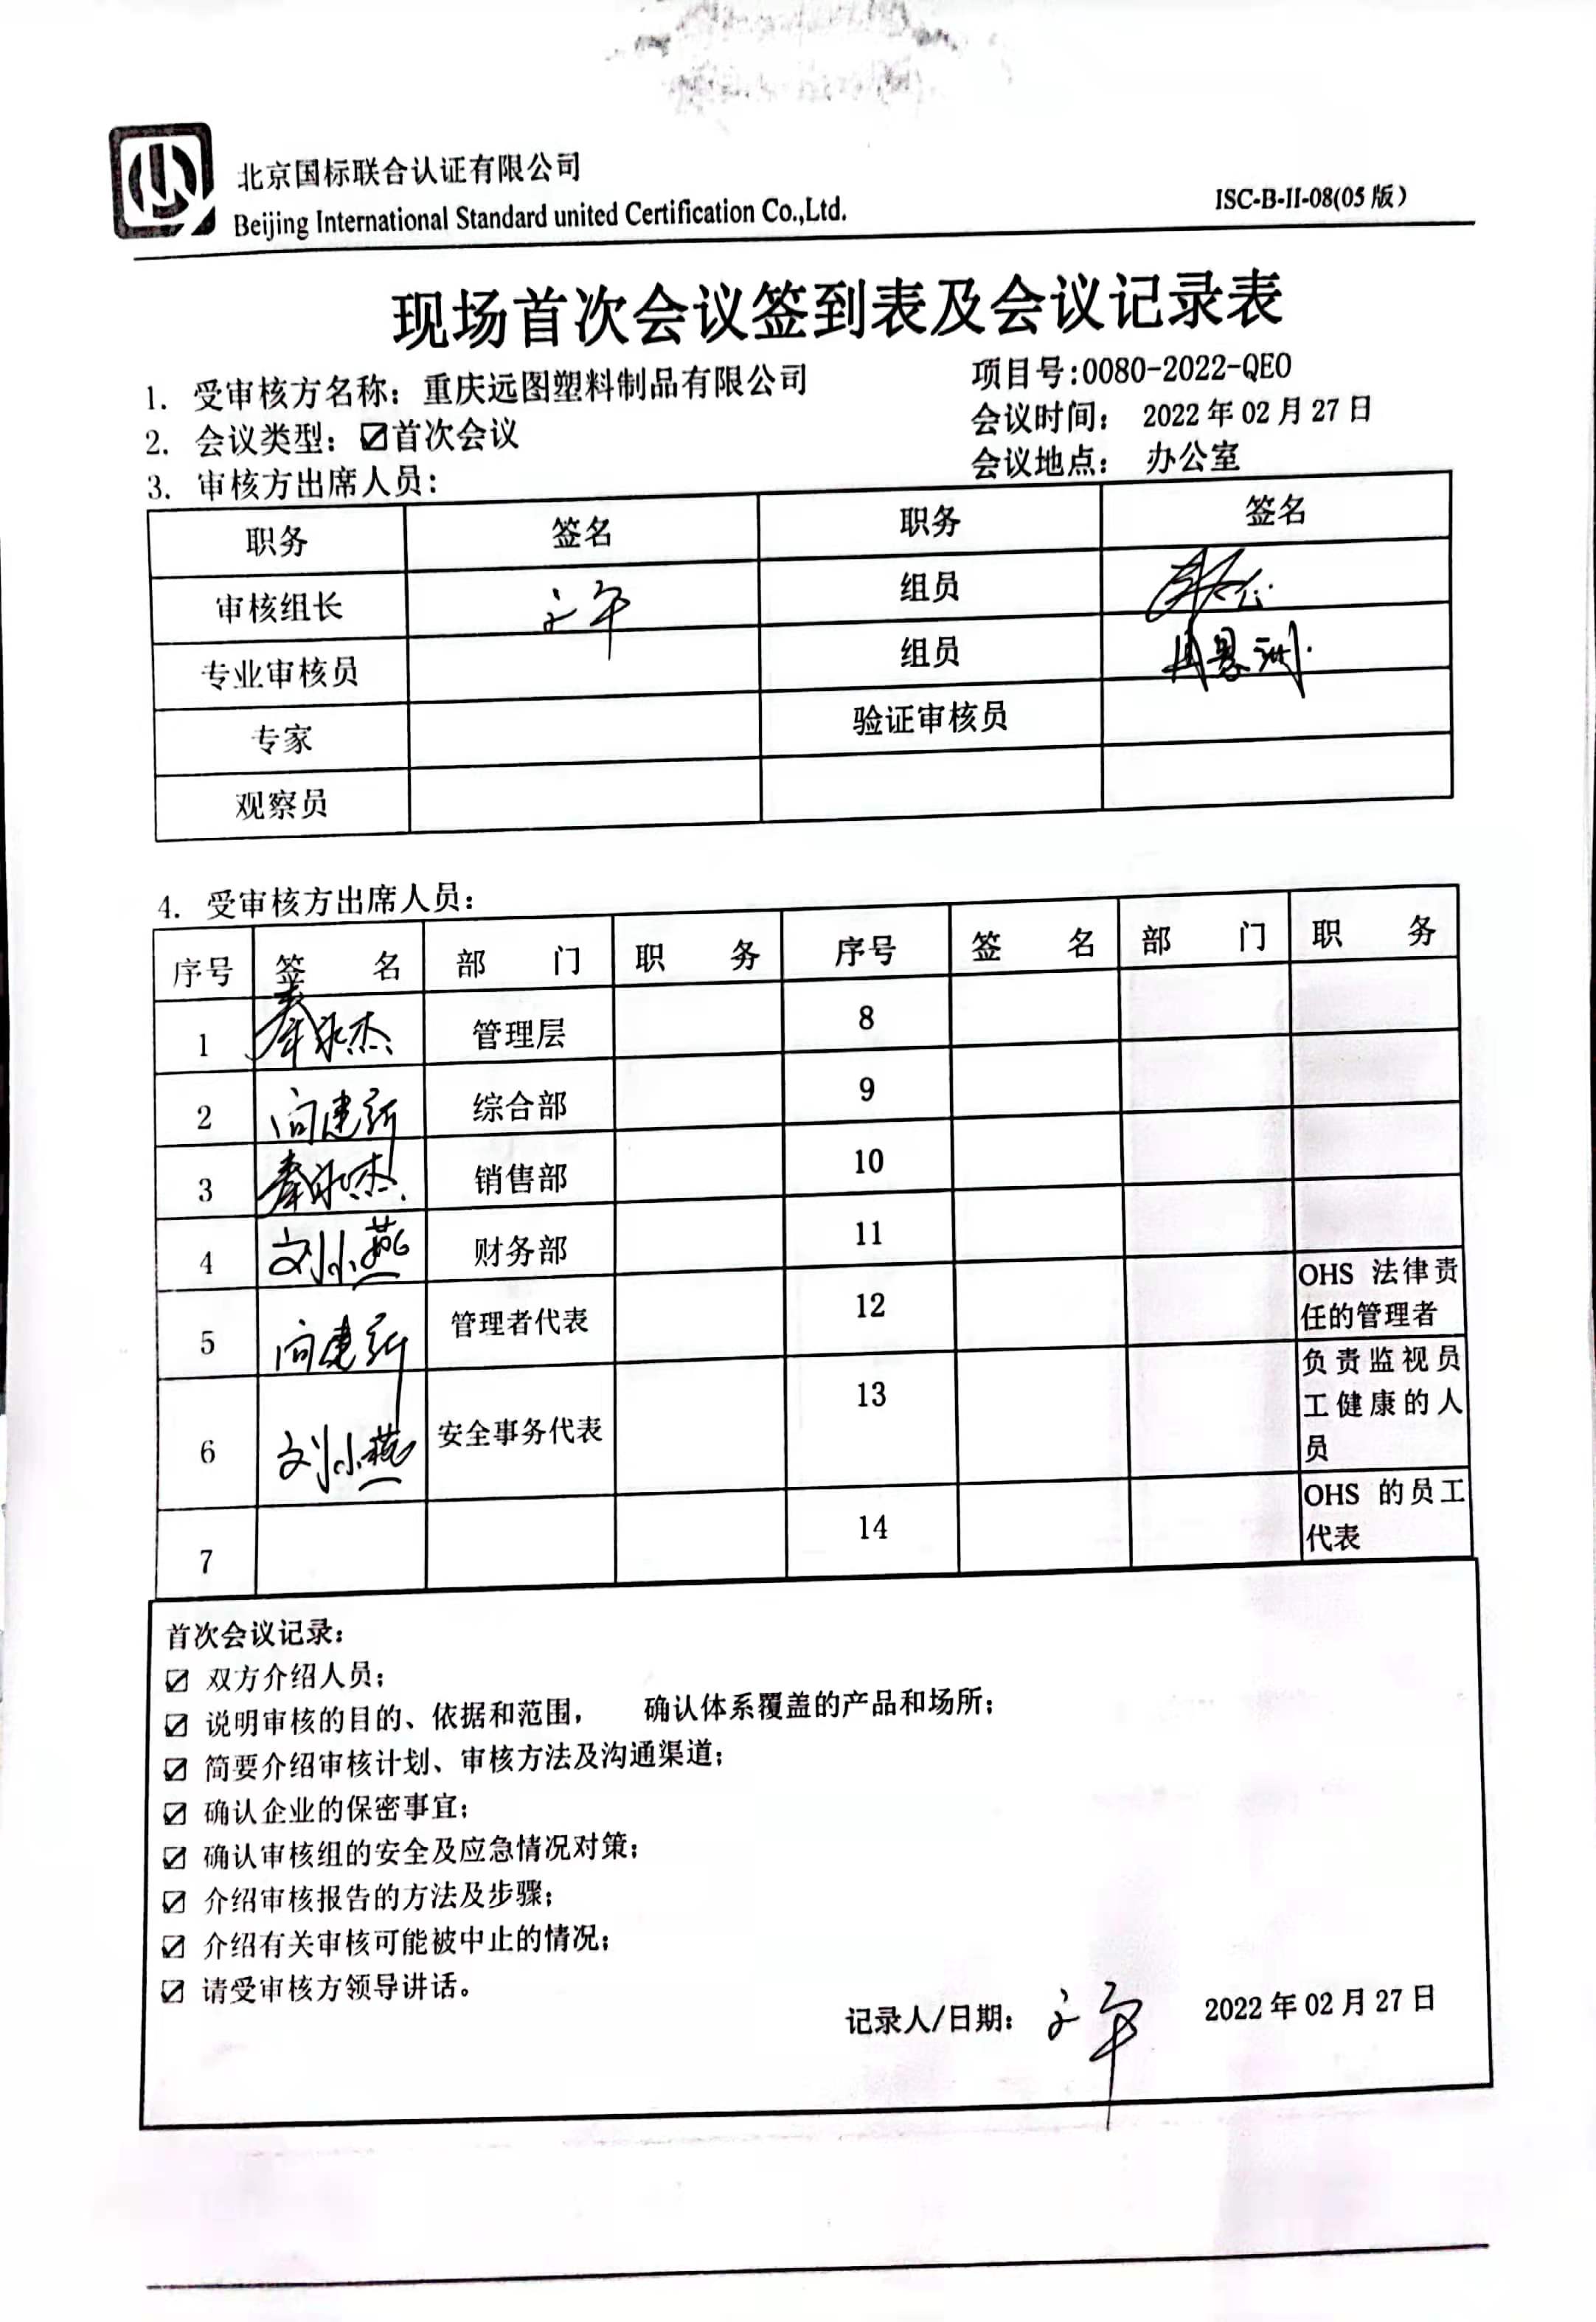 北京国标联合认证有限公司
Beijing International Standard united Certification Co.,Ltd.
ISC-B-II-08(05版)
现场首次会议签到表及会议记录表
1. 受审核方名称：重庆远图塑料制品有限公司 项目号:0080-2022-QEO
2. 会议类型：☑首次会议 会议时间： 2022年02月27日
3. 审核方出席人员： 会议地点： 办公室
职务 签名 职务 签名
审核组长 组员
专业审核员 组员
专家 验证审核员
观察员
4. 受审核方出席人员：
序号 签 名 部 门 职 务 序号 签 名 部 门 职 务
1 秦永杰 管理层 8
2 向建新 综合部 9
3 秦永杰 销售部 10
4 刘小燕 财务部 11
5 向建新 管理者代表 12 OHS 法律责
任的管理者
6 刘小燕 安全事务代表 13 负责监视员
工健康的人
员
7 14 OHS 的员工
代表
首次会议记录：
☑ 双方介绍人员；
☑ 说明审核的目的、依据和范围， 确认体系覆盖的产品和场所；
☑ 简要介绍审核计划、审核方法及沟通渠道；
☑ 确认企业的保密事宜；
☑ 确认审核组的安全及应急情况对策；
☑ 介绍审核报告的方法及步骤；
☑ 介绍有关审核可能被中止的情况；
☑ 请受审核方领导讲话。
记录人/日期： 2022年02月27日